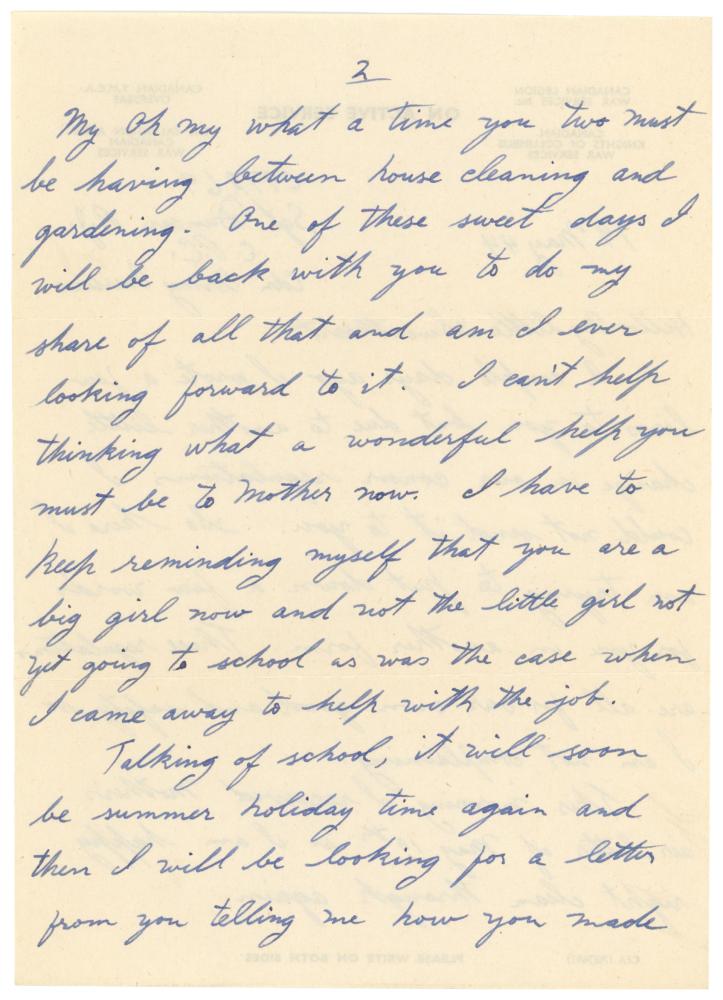 2
My Oh my what a time you two must
be having between house cleaning and
gardening. One of these sweet days I
will be back with you to do my
share of all that and am I ever
looking forward to it. I can't help
thinking what a wonderful help you
must be to Mother now. I have to
keep reminding myself that you are a
big girl now and not the little girl not
yet going to school as was the case when
I came away to help with the job.
Talking of school, it will soon
be summer holiday time again and
then I will be looking for a letter
from you telling me how you made